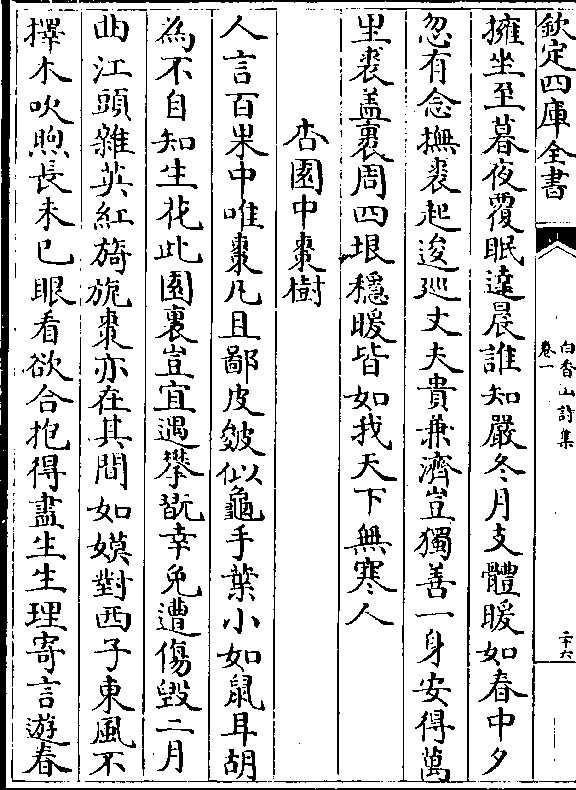 欽定四庫全書
白香山詩集
卷一
二十六
擁坐至暮夜覆眠逹晨誰知嚴冬月支體暖如春中夕
忽有念撫裘起逡巡丈夫貴兼濟豈獨善一身安得萬
里裘盖裹周四垠穩暖皆如我天下無寒人
杏園中棗樹
人言百果中唯棗凡且鄙皮皴似龜手葉小如鼠耳胡
為不自知生花此園裏豈宜遇攀翫幸免遭傷毀二月
曲江頭雜英紅旖旎棗亦在其間如嫫對西子東風不
擇木吹煦長未已眼看欲合抱得盡生生理寄言遊春